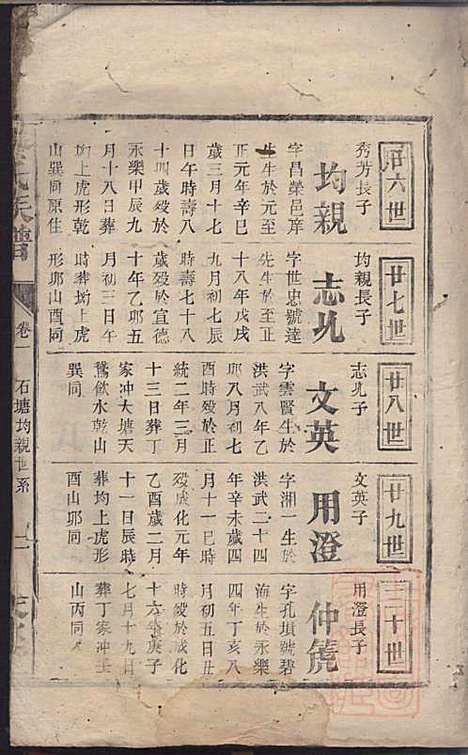 廿六世
秀芳長子
均親
字昌榮邑庠
生生於元至
正元年辛巳
歲三月十七
日午時壽八
十四歲殁於
永樂甲辰九
月十八日葬
均上虎形乾
山巽同原住
廿七世
均親長子
志
字世忠號達
先生於至正
十八年戊戌
九月初七日
時壽七十八
歲殁於宣德
十年乙卯五
月初三日午
時葬均上虎
形卯山酉同
廿八世
志 子
文英
字雲賢生於
洪武八年乙
卯八月初七
酉時殁於正
統二年三月
十三日葬丁
家冲大塘天
鵞飲水乾山
巽同
廿九世
文英子
用澄
字湘一生於
洪武二十四
年辛未歲四
月十一巳時
殁成化元年
乙酉歲二月
十一日辰時
葬均上虎形
酉山卯同
三十世
用澄長子
仲箎
字孔塤號碧
海生於永樂
四年丁亥八
月初五日丑
時殁於成化
十六年庚子
七月十九日
葬丁家冲壬
山丙同
氏族譜
卷一
石塘均親世系